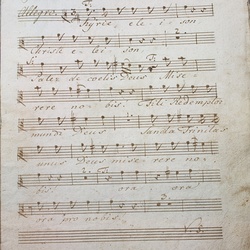 Allegro
Kyrie e le i son
Christe e lei son.
S: T:
Pater de coelis Deus Mise
rere nobis. Fili Redemptor
mundi Deus Sancta Trinitas
unus Deus mise rere no
bis. ora ora
ora pro nobis.